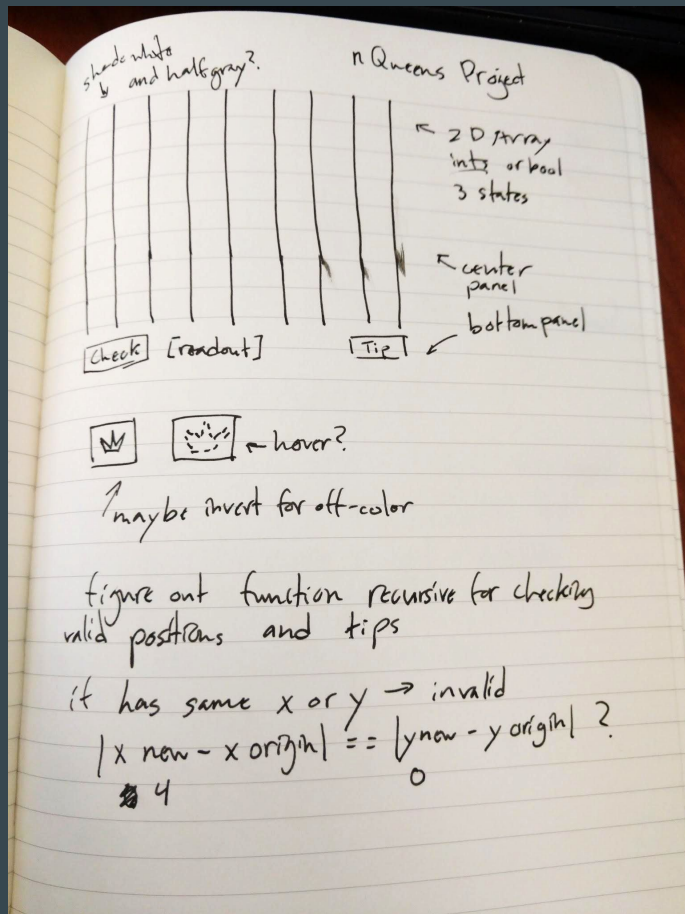 shade white
and half gray?
n Queens Project
2D Array
ints or bool
3 states
center
panel
bottom panel
Check [readout] Tip
hover?
maybe invert for off-color
figure out function recursive for checking
valid positions and tips
if has same x or y → invalid
|x new - x origin| == |y new - y origin| ?
4 0